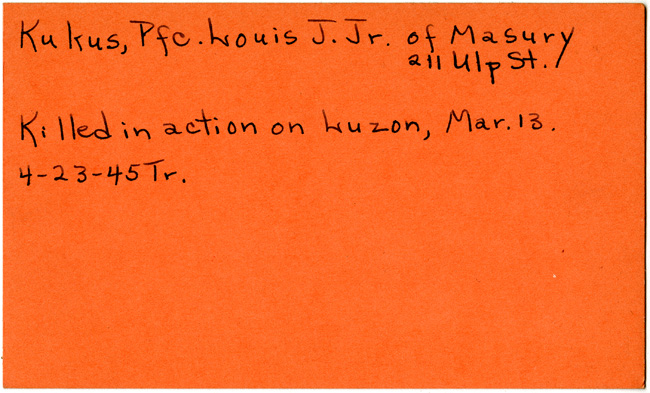 Kukus, Pfc. Louis J. Jr. of Masury
211 Ulp St.
Killed in action on Luzon, Mar. 13.
4-23-45 Tr.